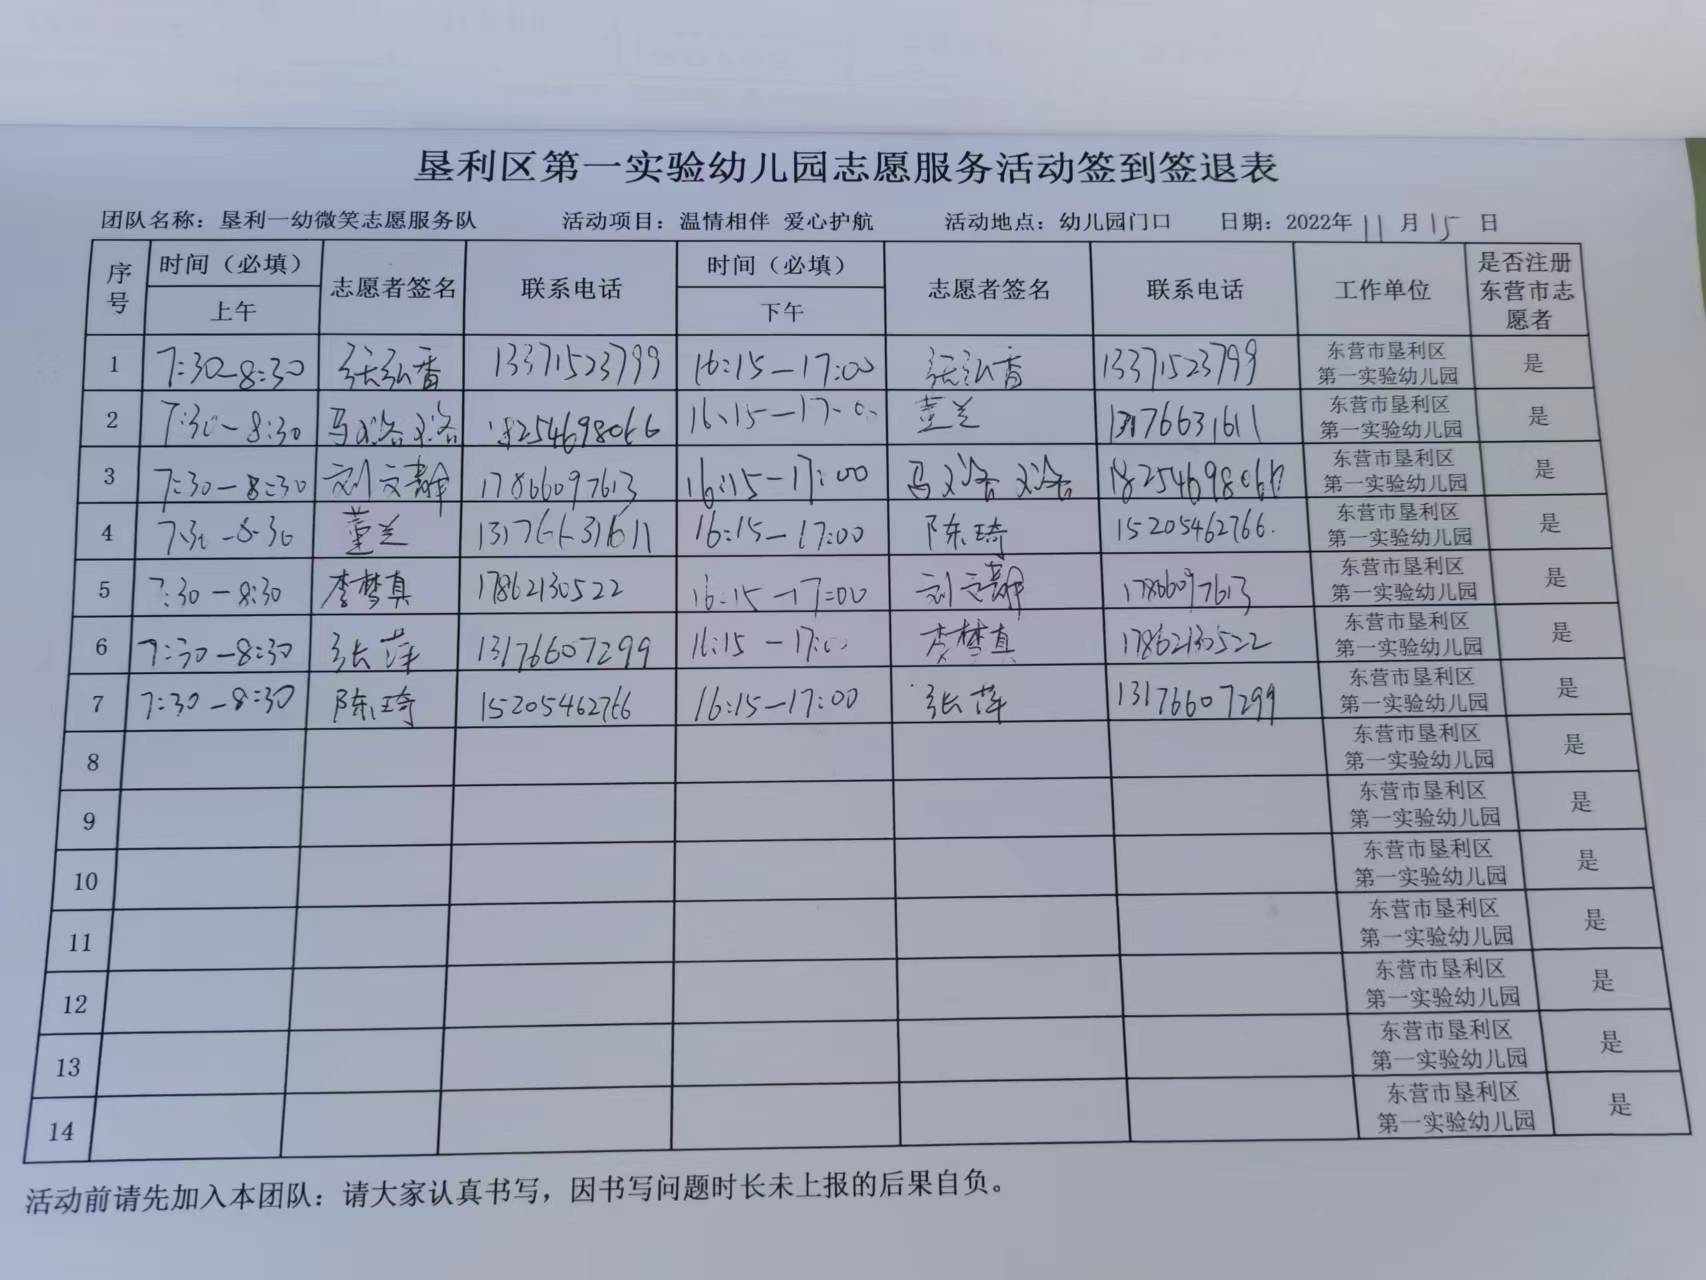 垦利区第一实验幼儿园志愿服务活动签到签退表
团队名称：垦利一幼微笑志愿服务队 活动项目：温情相伴 爱心护航 活动地点：幼儿园门口 日期：2022年 11 月 15 日
序号 时间（必填） 上午 志愿者签名 联系电话 时间（必填） 下午 志愿者签名 联系电话 工作单位 是否注册东营市志愿者
1 7:30-8:30 张弘香 13371523799 16:15-17:00 张弘香 13371523799 东营市垦利区第一实验幼儿园 是
2 7:30-8:30 马 18254698066 16:15-17:00 董兰 13176631611 东营市垦利区第一实验幼儿园 是
3 7:30-8:30 刘文静 17866097613 16:15-17:00 马 18254698066 东营市垦利区第一实验幼儿园 是
4 7:30-8:30 董兰 13176631611 16:15-17:00 陈琦 15205462766. 东营市垦利区第一实验幼儿园 是
5 7:30-8:30 李梦真 17862130522 16:15-17:00 刘文静 17866097613 东营市垦利区第一实验幼儿园 是
6 7:30-8:30 张萍 13176607299 16:15-17:00 李梦真 17862130522 东营市垦利区第一实验幼儿园 是
7 7:30-8:30 陈琦 15205462766 16:15-17:00 张萍 13176607299 东营市垦利区第一实验幼儿园 是
8 东营市垦利区第一实验幼儿园 是
9 东营市垦利区第一实验幼儿园 是
10 东营市垦利区第一实验幼儿园 是
11 东营市垦利区第一实验幼儿园 是
12 东营市垦利区第一实验幼儿园 是
13 东营市垦利区第一实验幼儿园 是
14 东营市垦利区第一实验幼儿园 是
活动前请先加入本团队：请大家认真书写，因书写问题时长未上报的后果自负。